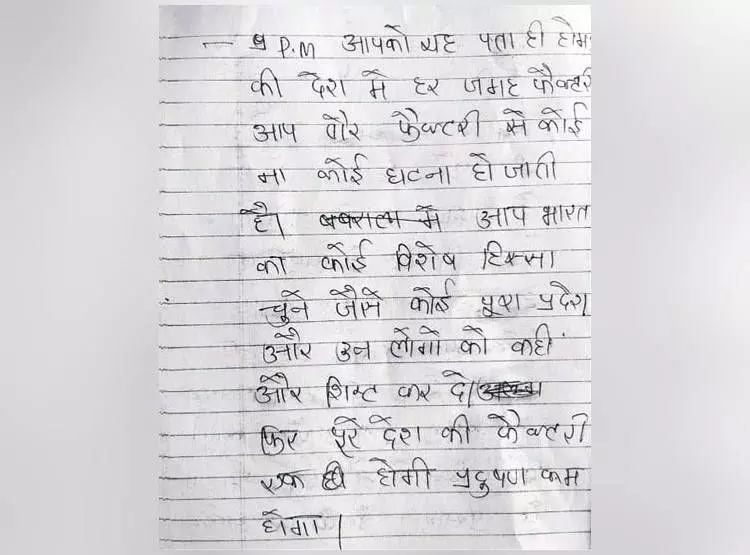 — P.M आपको यह पता ही होगा
की देश में हर जगह फैक्टरी
आप और फैक्टरी से कोई
ना कोई घटना हो जाती
है। में आप भारत
का कोई विशेष हिस्सा
चुने जैसे कोई पूरा प्रदेश
और उन लोगो को कहीं
और शिफ्ट कर दे।
फिर पूरे देश की फैक्टरी
एक ही होगी प्रदुषण कम
होगा।